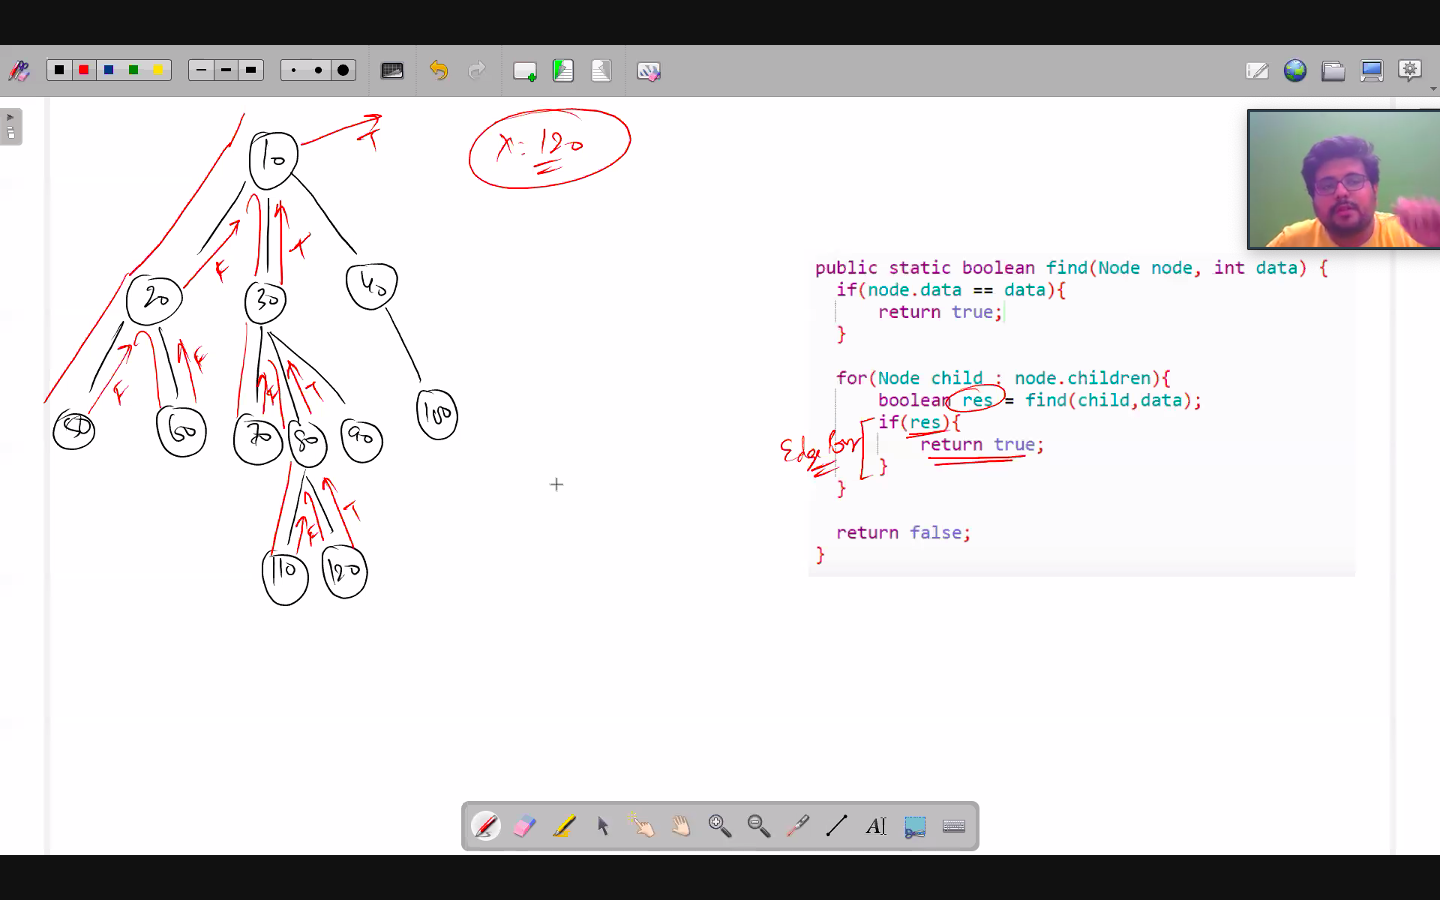 10
T
x: 120
20
30
40
F
T
F
F
F
T
60
70
80
90
100
F
T
110
120
public static boolean find(Node node, int data) {
if(node.data == data){
return true;
}
for(Node child : node.children){
boolean res = find(child,data);
if(res){
return true;
}
}
return false;
}
Edge